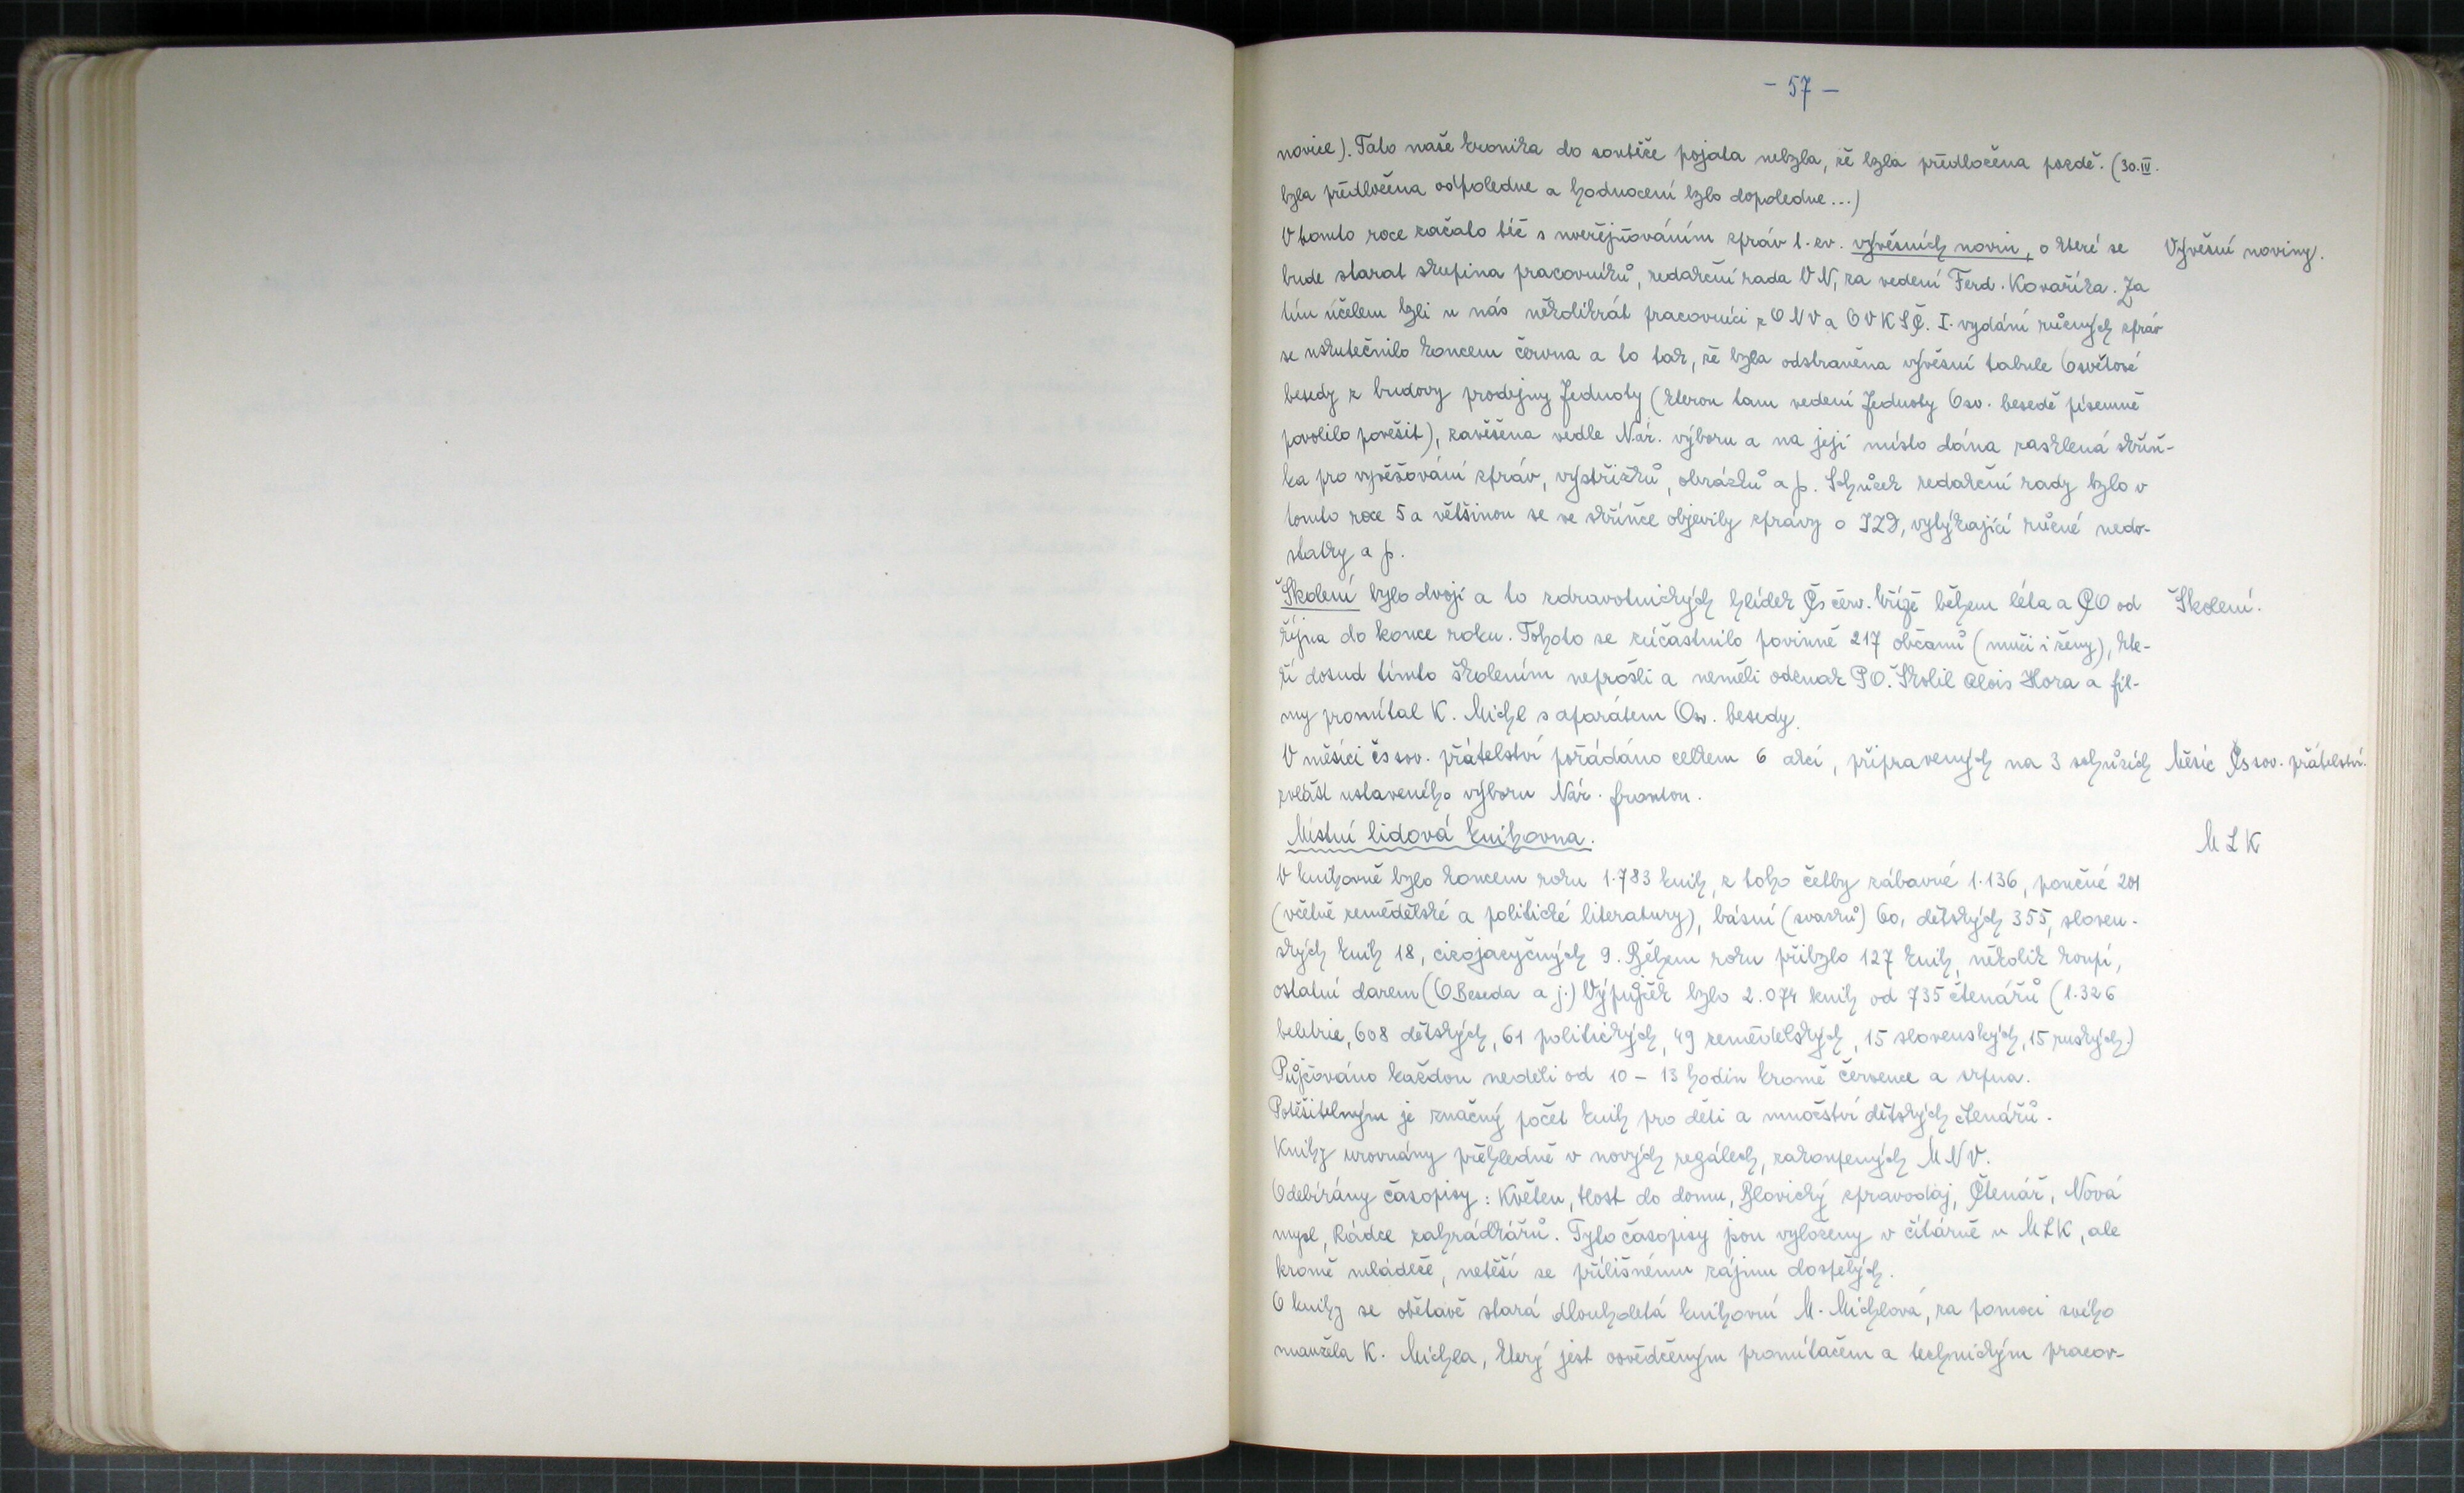 - 57 -
novice). Tato naše kronika do soutěže pojata nebyla, že byla předložena pozdě. (30.IV.
byla předložena odpoledne a hodnocení bylo dopoledne...)
V tomto roce začalo též s uveřejňováním zpráv t. zv. vývěsních novin, o které se
Vývěsní noviny.
bude starat skupina pracovníků, redakční rada VN, za vedení Ferd. Kovaříka. Za
tím účelem byli u nás několikrát pracovníci z ONV a OVKSČ. I. vydání různých zpráv
se uskutečnilo koncem června a to tak, že byla odstraněna vývěsní tabule Osvětové
besedy z budovy prodejny Jednoty (kterou tam vedení Jednoty Osv. besedě písemně
povolilo pověsit), zavěšena vedle Nár. výboru a na její místo dána zasklená skříň-
ka pro vyvěšování zpráv, výstřižků, obrázků a p. Schůzek redakční rady bylo v
tomto roce 5 a většinou se ve skříňce objevily zprávy o JZD, vytýkající různé nedo-
statky a p.
Školení bylo dvojí a to zdravotnických hlídek Čs červ. kříže během léta a CO od
Školení.
října do konce roku. Tohoto se zúčastnilo povinně 217 občanů (muži i ženy), kte-
ří dosud tímto školením neprošli a neměli odznak PO. Školil Alois Hora a fil-
my promítal K. Michl s aparátem Osv. besedy.
V měsíci čs sov. přátelství pořádáno celkem 6 akcí, připravených na 3 schůzích
Měsíc Čs sov. přátelství.
zvlášť ustaveného výboru Nár. frontou.
Místní lidová knihovna.
M L K
V knihovně bylo koncem roku 1.783 knih, z toho četby zábavné 1.136, poučné 201
(včetně zemědělské a politické literatury), básní (svazků) 60, dětských 355, sloven-
ských knih 18, cizojazyčných 9. Během roku přibylo 127 knih, několik koupí,
ostatní darem (O.Beseda a j.) Výpůjček bylo 2.074 knih od 735 čtenářů (1.326
beletrie, 608 dětských, 61 politických, 49 zemědělských, 15 slovenských, 15 ruských.)
Půjčováno každou neděli od 10 - 13 hodin kromě července a srpna.
Potěšitelným je značný počet knih pro děti a množství dětských čtenářů.
Knihy urovnány přehledně v nových regálech, zakoupených MNV.
Odebírány časopisy: Květen, Host do domu, Blovický zpravodaj, Čtenář, Nová
mysl, Rádce zahrádkářů. Tyto časopisy jsou vyloženy v čítárně u MLK, ale
kromě mládeže, netěší se přílišnému zájmu dospělých.
O knihy se obětavě stará dlouholetá knihovní M. Michlová, za pomoci svého
manžela K. Michla, který jest osvědčeným promítačem a technickým pracov-